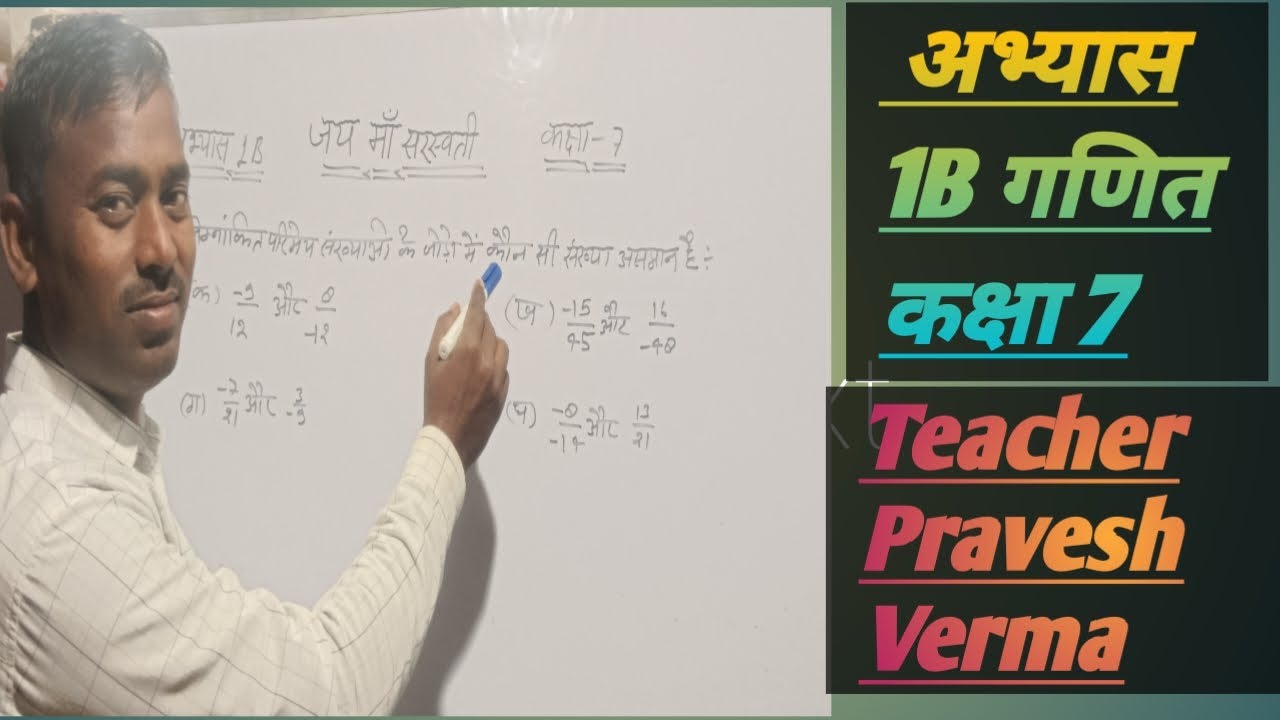 भ्यास 1B जय माँ सरस्वती कक्षा-7
निम्नांकित परिमेय संख्याओं के जोड़ो में कौन सी संख्या असमान है:-
(क) -9/12 और 8/-12 (ख) -15/45 और 16/-48
(ग) -7/21 और 3/-9 (घ) -8/-14 और 13/21
अभ्यास
1B गणित
कक्षा 7
Teacher
Pravesh
Verma